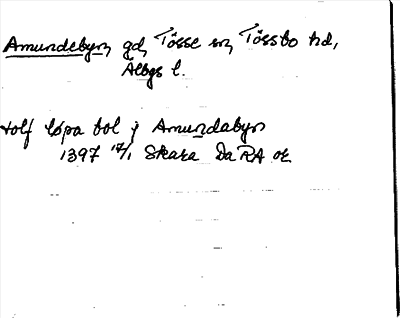 Amundebyn, gd, Tösse sn, Tössbo hd,
Älvbgs l.
tolf løpa bol j Amundabyn
1397 17/1 Skara Da RA or.